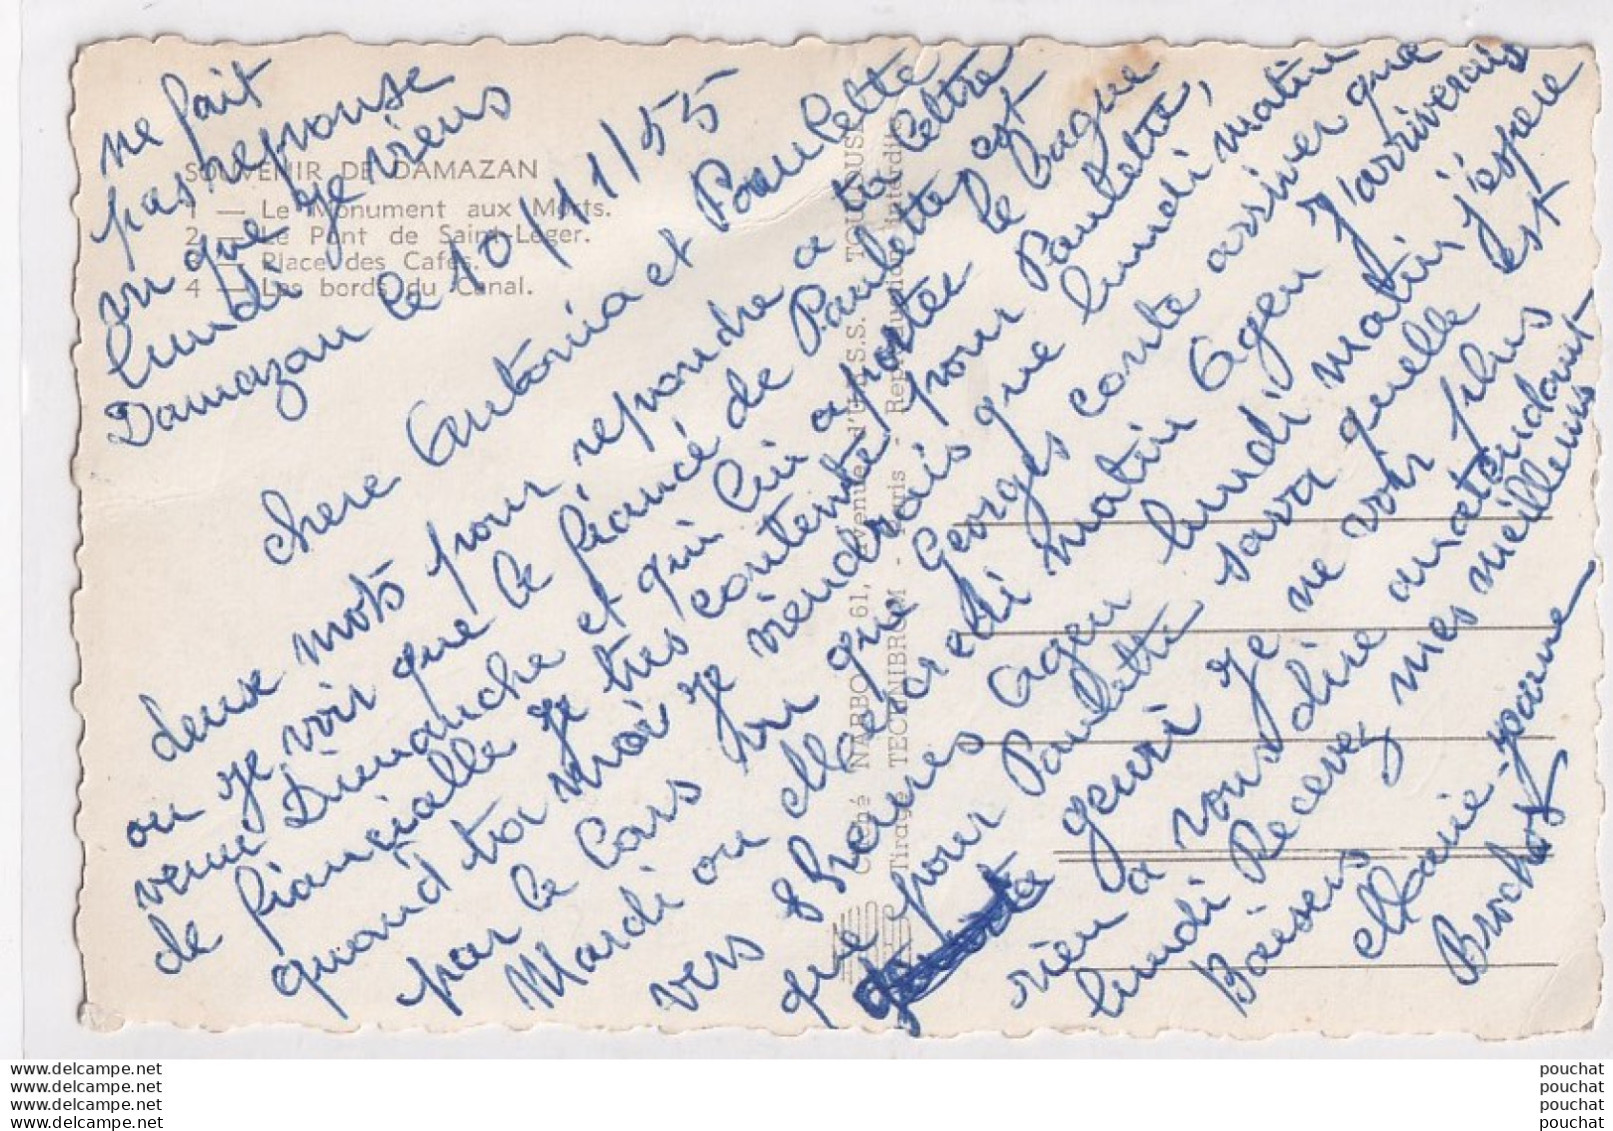 ne fait
pas reponse
vu que je viens
lundi
Damazan le 10/11/55
chere Antonia et Paulette
deux mots pour repondre a ta lettre
ou je voir que le fiancé de Paulette est
venu Dimanche et qui lui a porter le Bague
de fiancialle je tres contente pour Paulette,
quand ta moi je viendrais que lundi matin
par le Cars vu que Georges conte arriver que
Mardi ou Mercredi matin Agen j'arriverais
vers 8 heures Agen lundi matin j'espere
que pour Paulette sava quelle est
gueri je ne voir plus
rien a vous dire en attendant
lundi Recevez mes meilleurs
Baisers
Marie-Jeanne
Brochot
SOUVENIR DE DAMAZAN
1 — Le Monument aux Morts.
2 — Le Pont de Saint-Léger.
3 — Place des Cafés.
4 — Les bords du Canal.
Cliché NARBO, 61, Avenue d'U.R.S.S. TOULOUSE
Tirage TECHNIBROM - Paris - Reproduction interdite
www.delcampe.net
www.delcampe.net
www.delcampe.net
www.delcampe.net
pouchat
pouchat
pouchat
pouchat